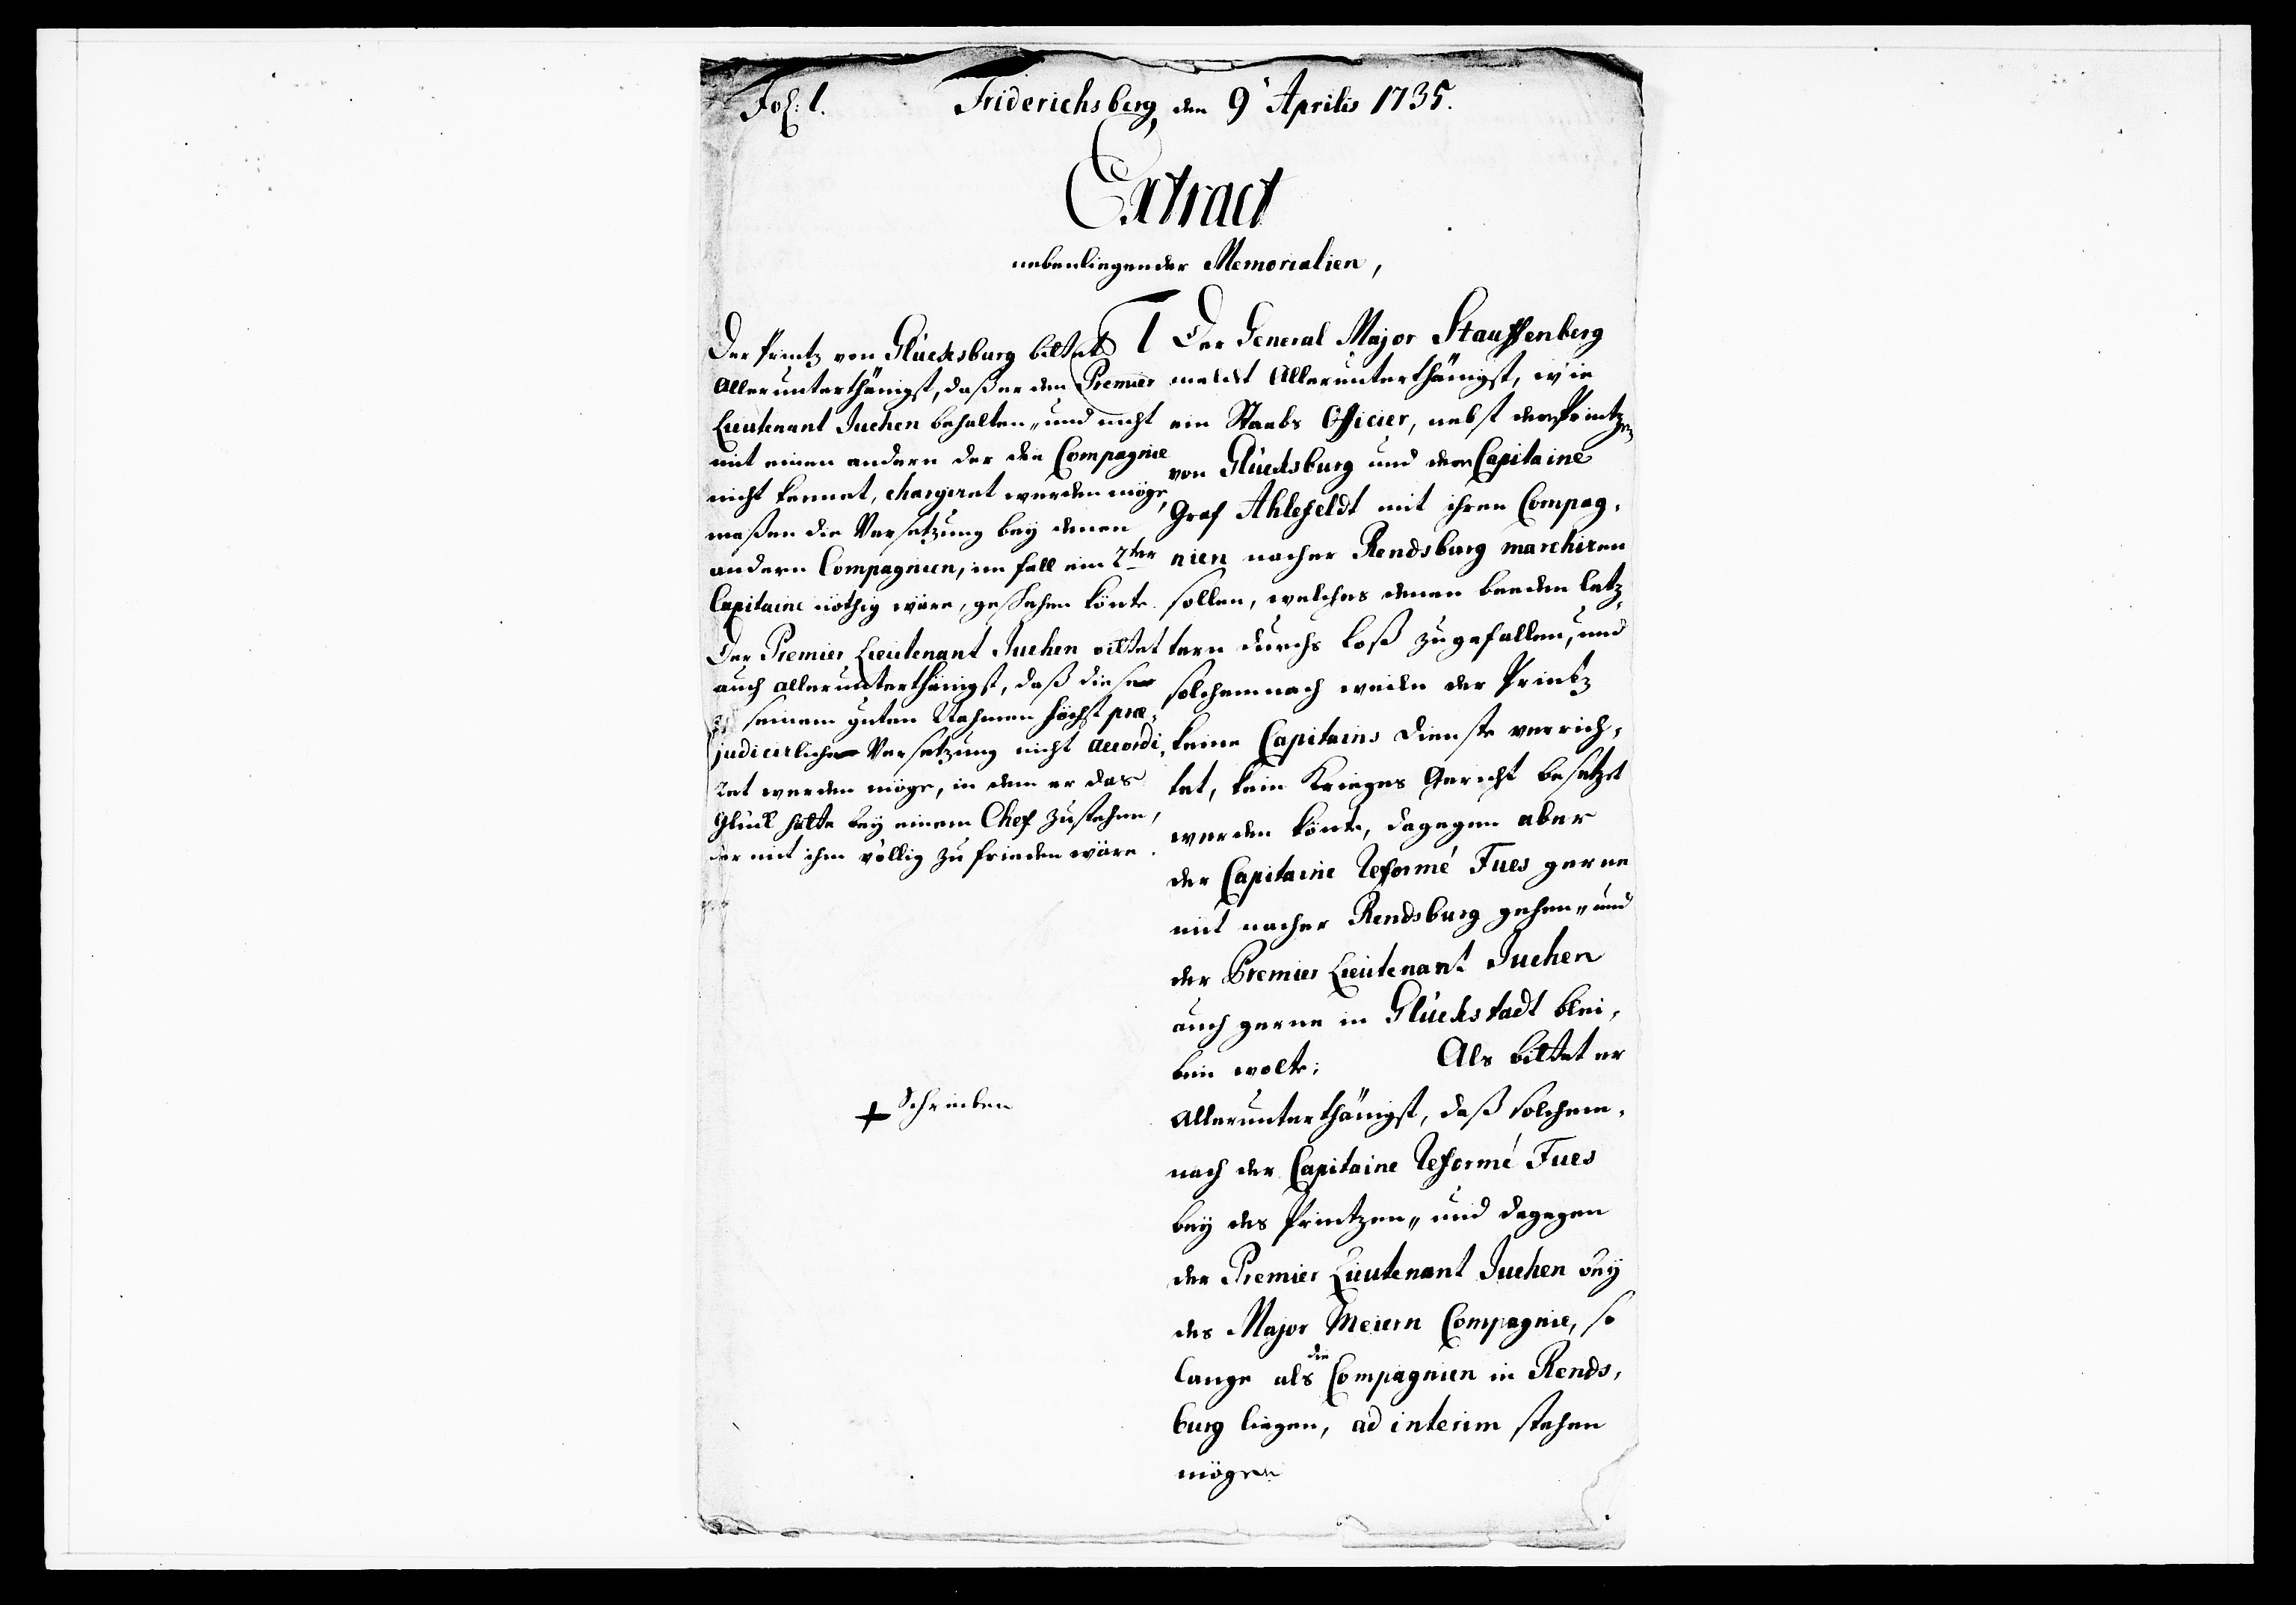 Fol: 1.
Friderichsberg, den 9' Aprilis 1735.
Extract
nebenliegender Memorialien,
Der Printz von Glücksburg bittet
allerunterthänigst, daß er den Premier
Lieutenant Juchen behalten, und nicht
mit einen andern der die Compagnie
nicht kennet, chargiret werden möge,
maßen die Versetzung bey denen
andern Compagnien, im fall ein 2ter
Capitaine nöthig wäre, geschehen könte.
Der Premier Lieutenant Juchen bittet
auch allerunterthänigst, daß diese
seinem guten Nahmen höchst præ-
judicirliche Versetzung nicht accordi-
ret werden möge, in dem er das
Glück hätte bey einem Chef zustehen,
der mit ihm völlig zu frieden wäre.
+ Schreiben
1 Der General Major Stauffenberg
meldet allerunterthänigst, wie
ein Staabs Officier, nebst den Printzen
von Glücksburg und den Capitaine
Graf Ahlefeldt mit ihren Compag-
nien nacher Rendsburg marchiren
sollen, welches denen beeden letz-
tern durchs Loß zugefallen, und
solchemnach weilen der Printz
keine Capitains Dienste verrich-
tet, kein Krieges Gericht besetzet
werden könte, dagegen aber
der Capitaine Reformé Fues gerne
mit nacher Rendsburg gehen, und
der Premier Lieutenant Juchen
auch gerne in Glückstadt blei-
ben wolte; Als bittet er
allerunterthänigst, daß solchem-
nach der Capitaine Reformé Fues
bey des Printzen, und dagegen
der Premier Lieutenant Juchen bey
des Major Meiern Compagnie, so
lange als die Compagnien in Rends-
burg liegen, ad interim stehen
mögen